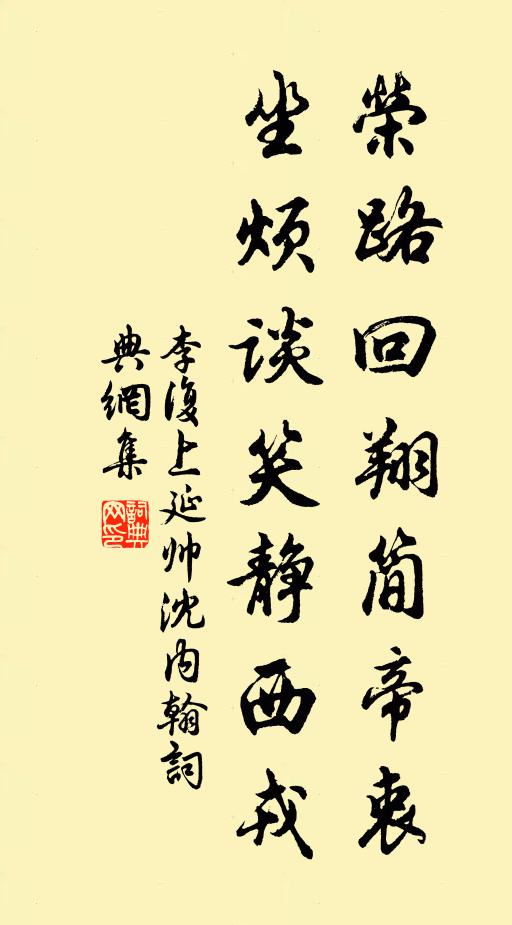 荣路回翔简帝衷
坐烦谈笑静西戎
李復上延帅沈内翰詞
典網集
詞典
网印